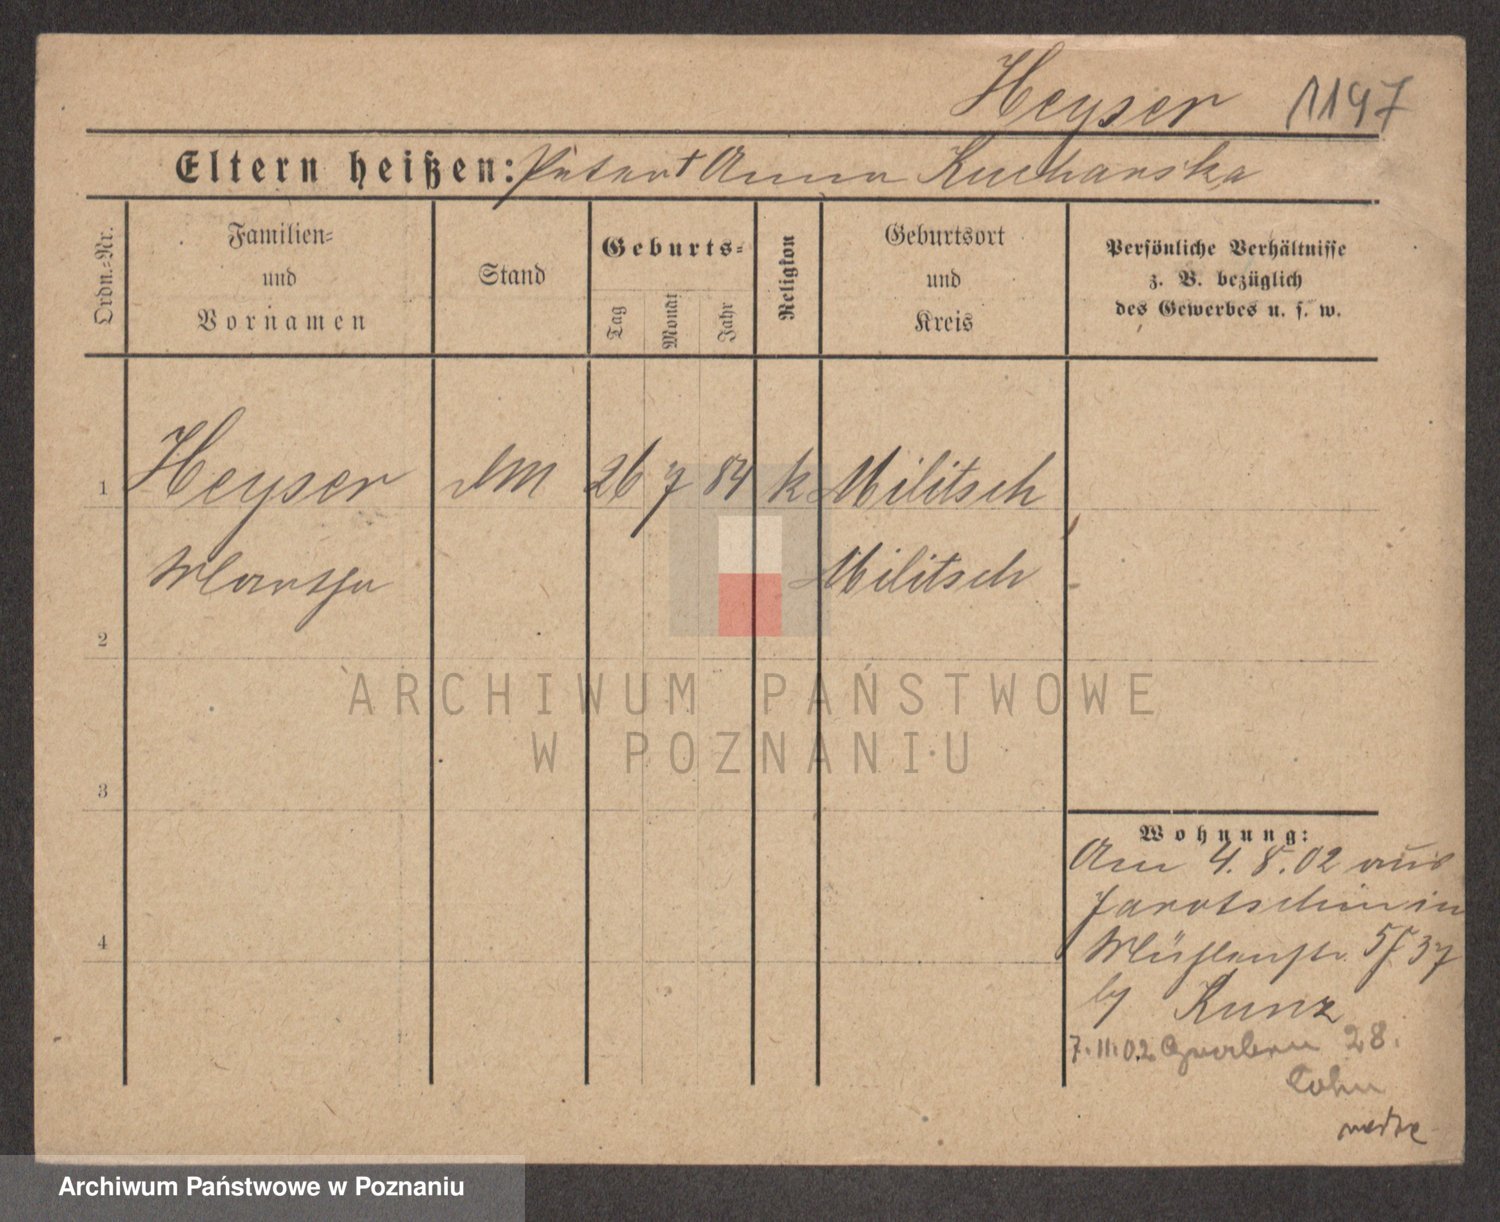 Heyser 1197
Eltern heißen: Peter † Anna Kucharska
Ordn.-Nr.
Familien-
und
Vornamen
Stand
Geburts-
Tag
Monat
Jahr
Religion
Geburtsort
und
Kreis
Persönliche Verhältnisse
z. B. bezüglich
des Gewerbes u. s. w.
1 Heyser DM 26 7 84 k Militsch
Martha Militsch
2
3
4
Wohnung:
Am 4. 8. 02 aus
Jarotschin in
Mühlenstr. 37
by Kunz
7.11.02 Graben 28.
Cohn
ARCHIWUM PAŃSTWOWE
W POZNANIU
Archiwum Państwowe w Poznaniu